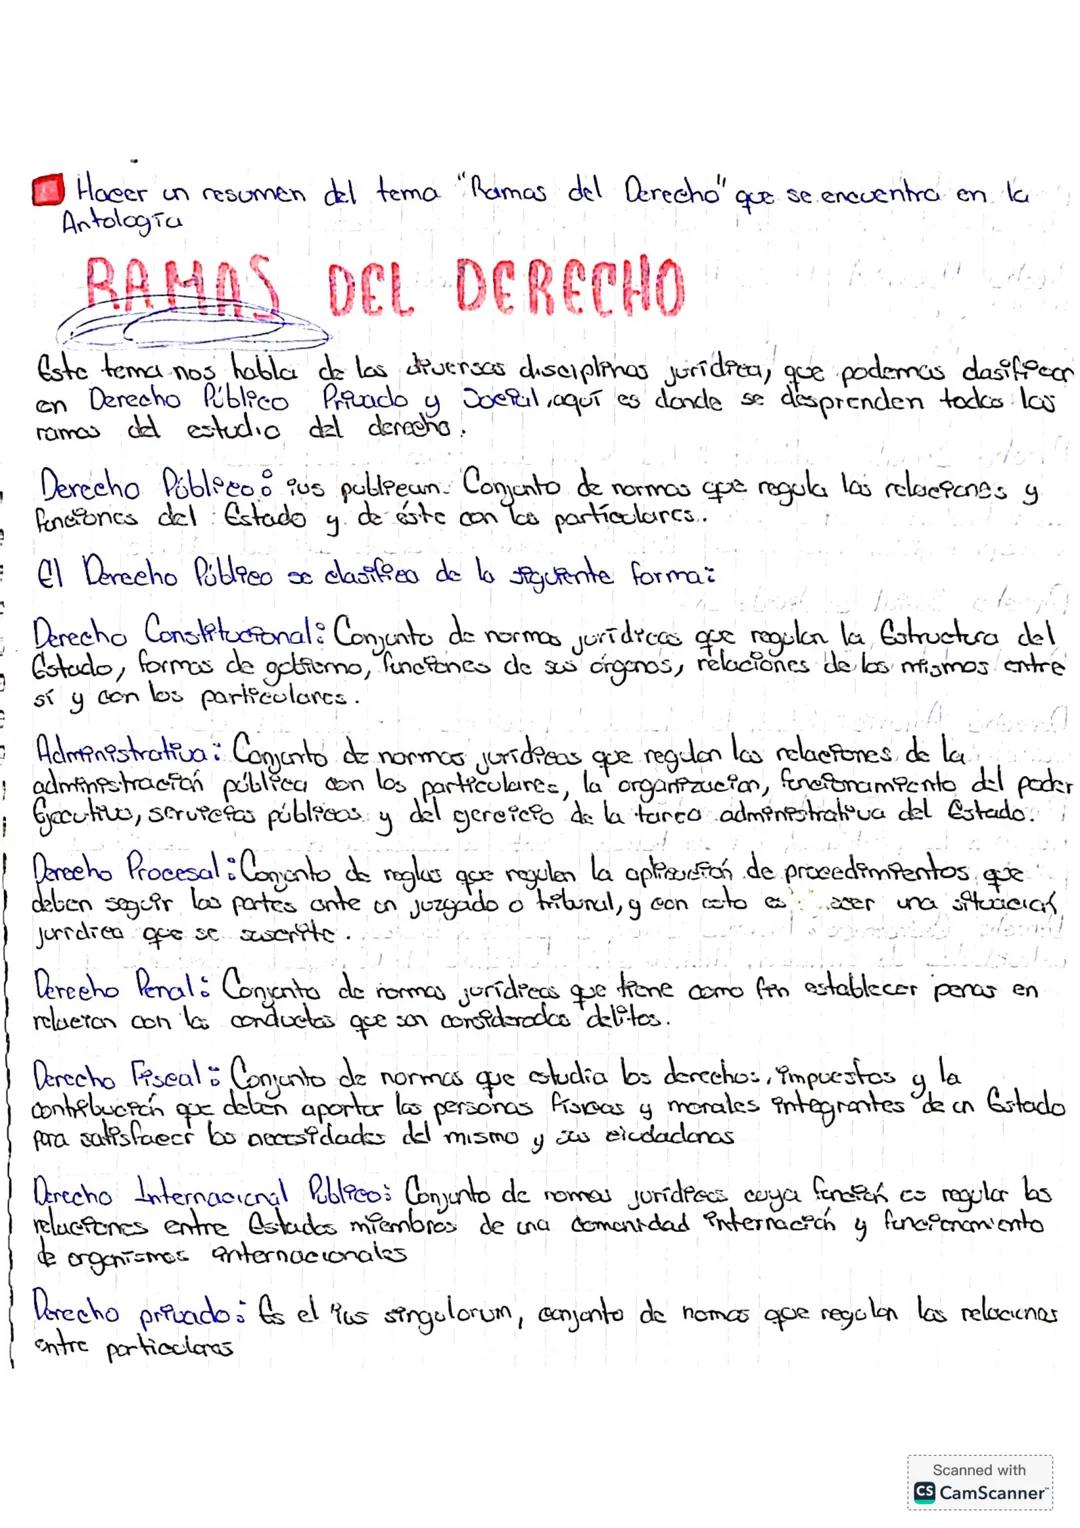 Hacer un resumen del tema "Ramas del Derecho" que se encuentra en la
Antología
RAMAS DEL DERECHO
Este tema nos habla de las diversas disciplinas jurídica, que podemos clasificar
en Derecho Público Privado y Social, aquí es donde se desprenden todas las
ramas del estudio del derecho.
Derecho Público: ius publicum. Conjunto de normas que regula las relaciones y
funciones del Estado y de éste con los particulares..
El Derecho Público se clasifica de la siguiente forma:
Derecho Constitucional: Conjunto de normas jurídicas que regulan la Estructura del
Estado, formas de gobierno, funciones de sus órganos, relaciones de los mismos entre
sí y con los particulares.
Administrativa: Conjunto de normas jurídicas que regulan las relaciones de la
administración pública con los particulares, la organización, funcionamiento del poder
Ejecutivo, servicios públicos y del ejercicio de la tarea administrativa del Estado.
Derecho Procesal: Conjunto de reglas que regulen la aplicación de procedimientos que
deben seguir las partes ante un juzgado o tribunal, y con esto una situación
jurídica que se suscrite.
Derecho Penal: Conjunto de normas jurídicas que tiene como fin establecer penas en
relación con las conductas que son consideradas delitos.
Derecho Fiscal: Conjunto de normas que estudia los derechos, impuestos y la
contribución que deben aportar las personas físicas y morales integrantes de un Estado
para satisfacer las necesidades del mismo y sus ciudadanas
Derecho Internacional Publico: Conjunto de normas jurídicas cuya función es regular las
relaciones entre Estados miembros de una comunidad internación y funcionamiento
de organismos internacionales
Derecho privado: Es el ius singulorum, conjunto de normas que regulan las relaciones
entre particulares
Scanned with
CS CamScanner